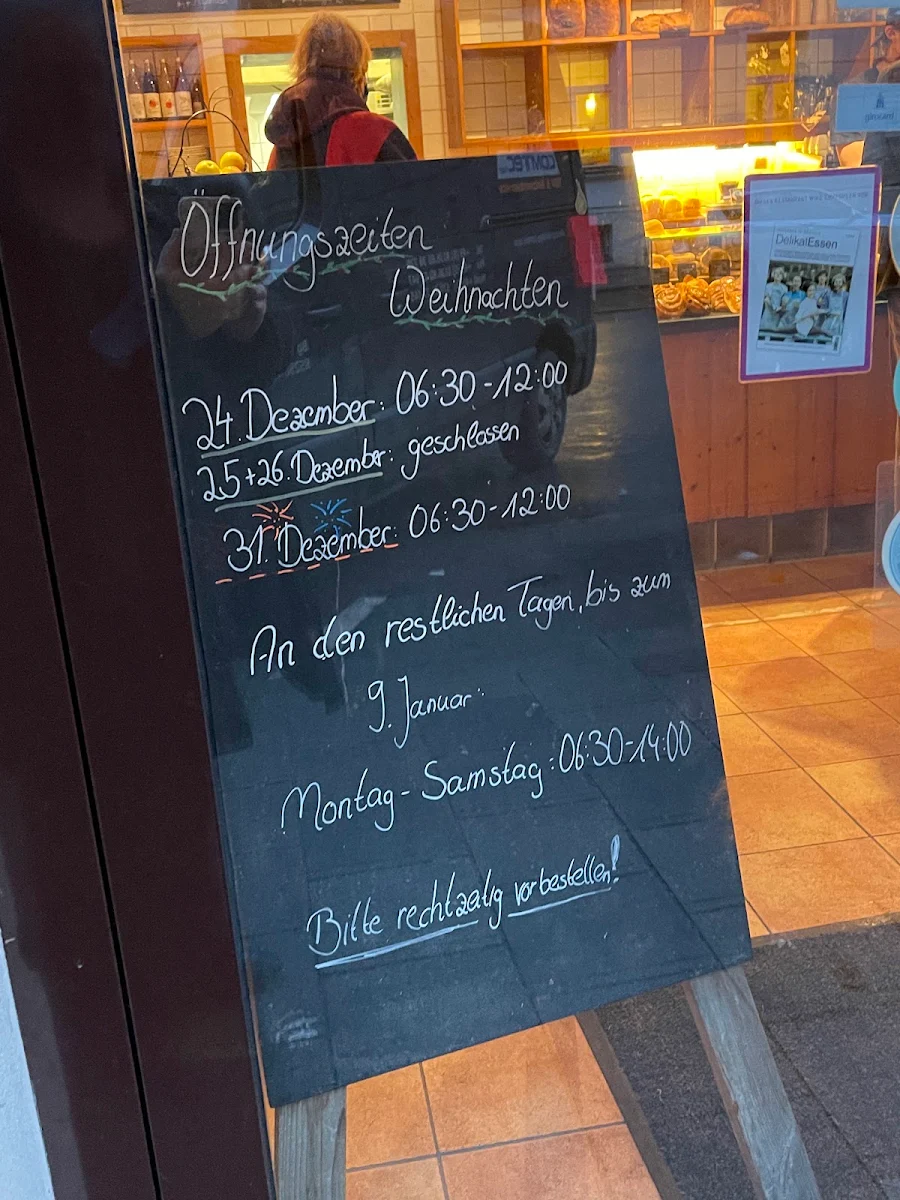 Öffnungszeiten
Weihnachten
24. Dezember: 06:30-12:00
25+26. Dezember: geschlossen
31. Dezember: 06:30-12:00
An den restlichen Tagen, bis zum
9. Januar:
Montag - Samstag: 06:30-14:00
Bitte rechtzeitig vorbestellen!
DelikatEssen
girocard